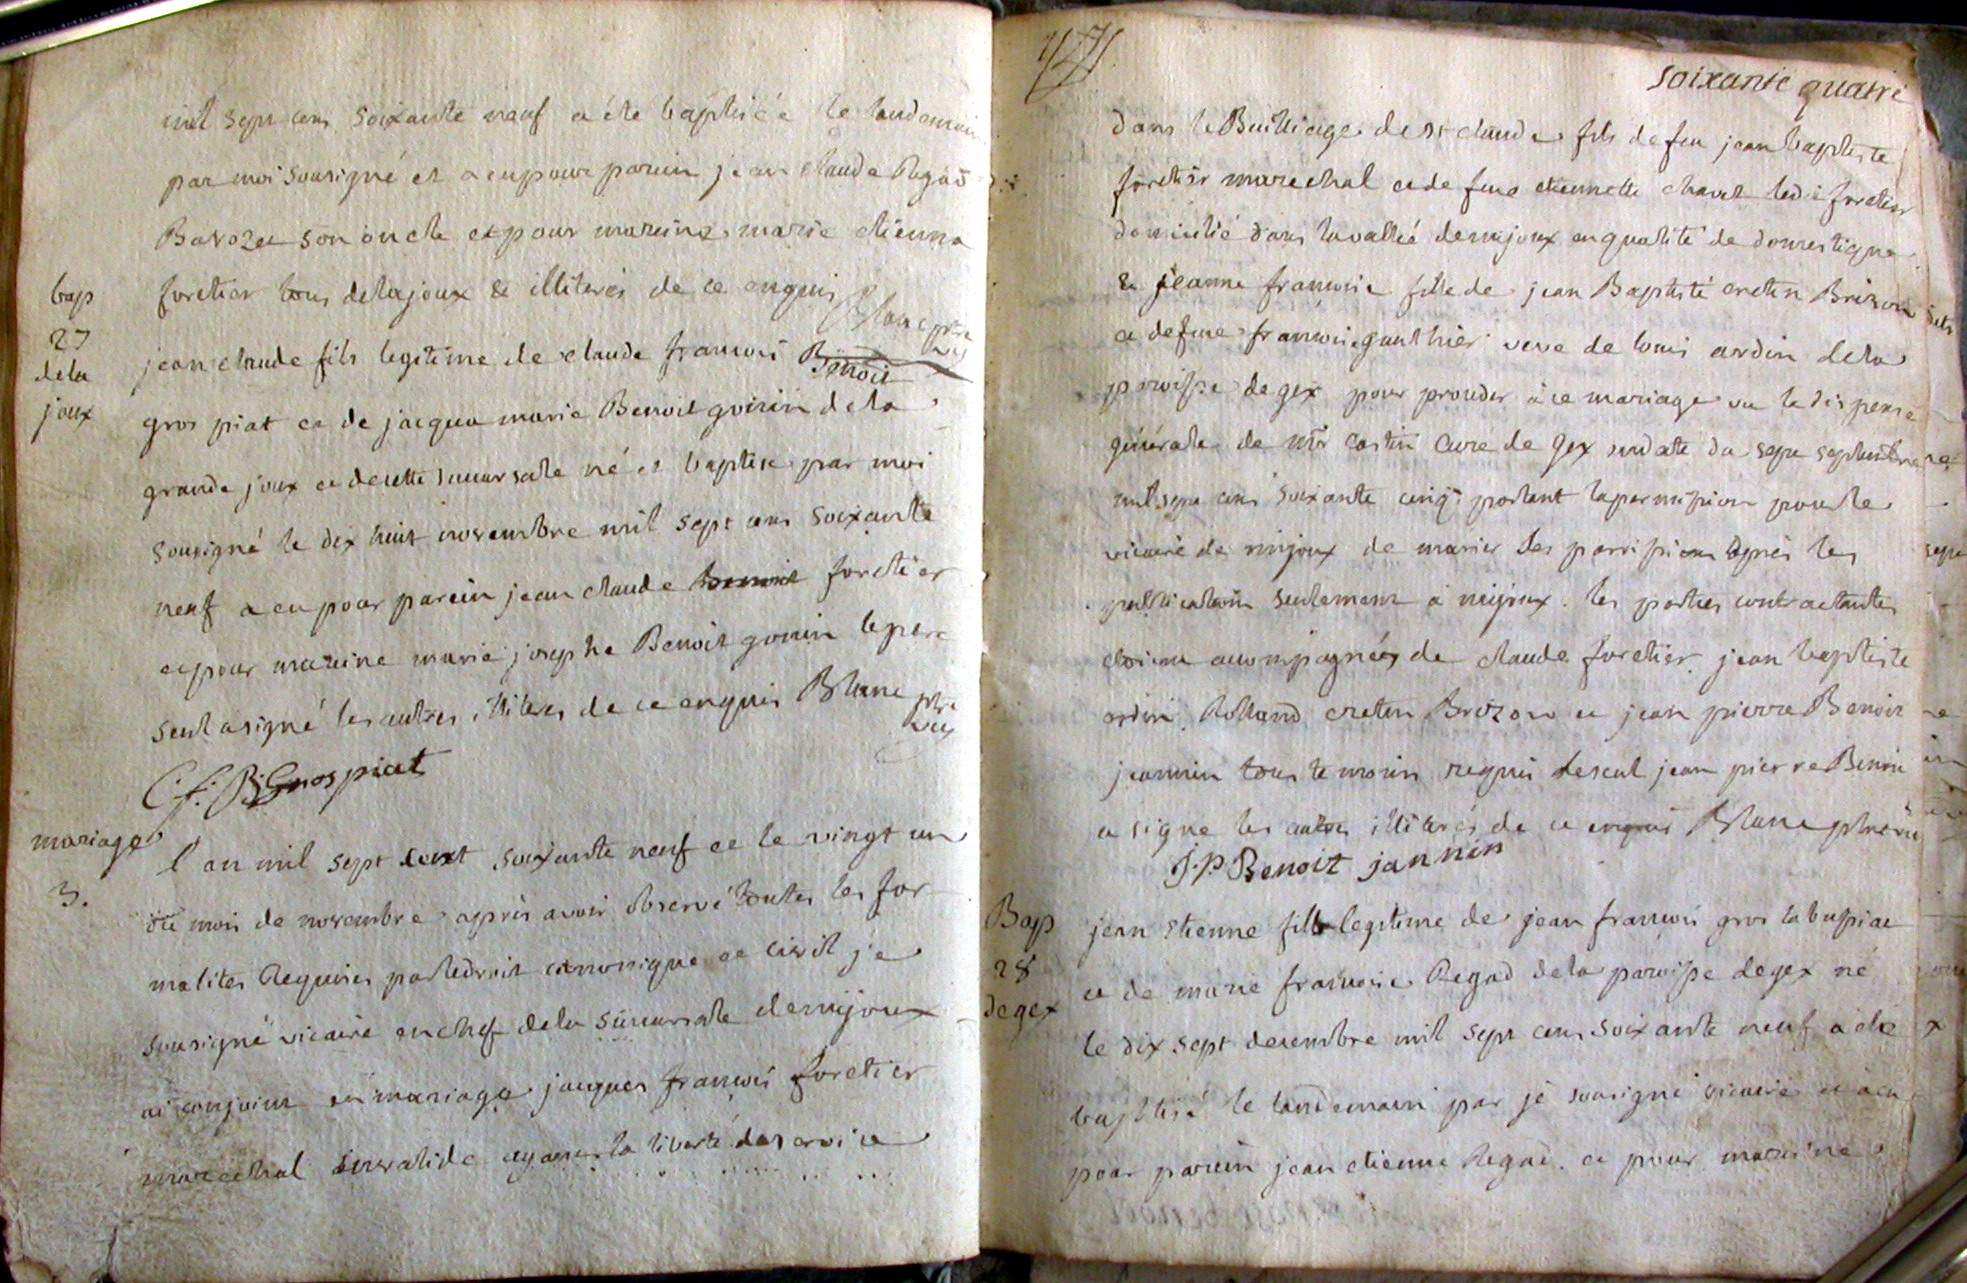 mil sept cens soixante neuf a éte baptisée le landemain
par moi sousigné et a eu pour parein jean claude Regad
Barozet son oncle et pour mareine marie etienna
foretier tous delajoux & illiterés de ce enquis
Blanc ptre
vic
bap
27
dela
joux
jean claude fils legitime de claude francois Benoit
gros piat et de jacqua marie Benoit goinin dela
grande joux et decette succursale né et baptise par moi
sousigné le dix huit novembre mil sept cens soixante
neuf a eu pour parein jean claude foretier
et pour mareine marie josephe Benoit gonin le pere
seul a signé les autres illiteres de ce enquis Blanc ptre
vic
C. f. B. Grospiat
mariage
3.
l'an mil sept cent soixante neuf et le vingt un
du mois de novembre apres avoir observé toutes les for
malites Requises parledroit canonique et civil je
sousigné vicaire enchef dela sucursale demijoux
ai conjoint en mariage jacques francois foretier
marechal invalide ayant la liberté deservice
147
soixante quatre
dans le Bailliage de st claude fils de feu jean baptiste
foretier marechal et de feue etiennette chavet ledi foretier
domicilié dans lavallée demijoux enqualité de domestique
& jeanne francoise fille de jean Baptiste cretin Brizon
et defeue francoise gauthier veve de louis ardin dela
paroisse de gex pour proceder à ce mariage vu la dispense
générale de mr castin cure de gex endate du sept septembre
mil sept cens soixante cinq portant lapermission pour le
vicaire de mijoux de marier ses parroissiens apres les
publications seulement a mijoux. les parties contractantes
etoient accompagnées de claude foretier jean baptiste
ardin, Rolland cretin Brizon et jean pierre Benoit
jeannin tous temoins requis leseul jean pierre Benoit
a signe les autres illiterés de ce enquis Blanc ptre vic
J. P. Benoit jannin
Bap
28
degex
jean etienne fils legitime de jean francois gros
et de marie francoise Regad dela paroisse degex né
le dix sept decembre mil sept cens soixante neuf a été
baptisé le landemain par je sousigné vicaire et a eu
pour parein jean etienne Regad. et pour mareine